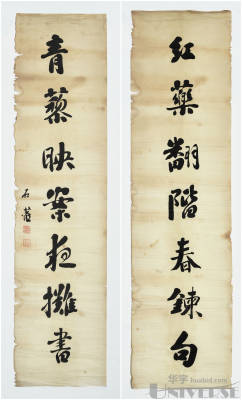 红藥翻階春鍊句
青藜映案夜攤書
石菴
华宇 huabid.com
UNIVERSE